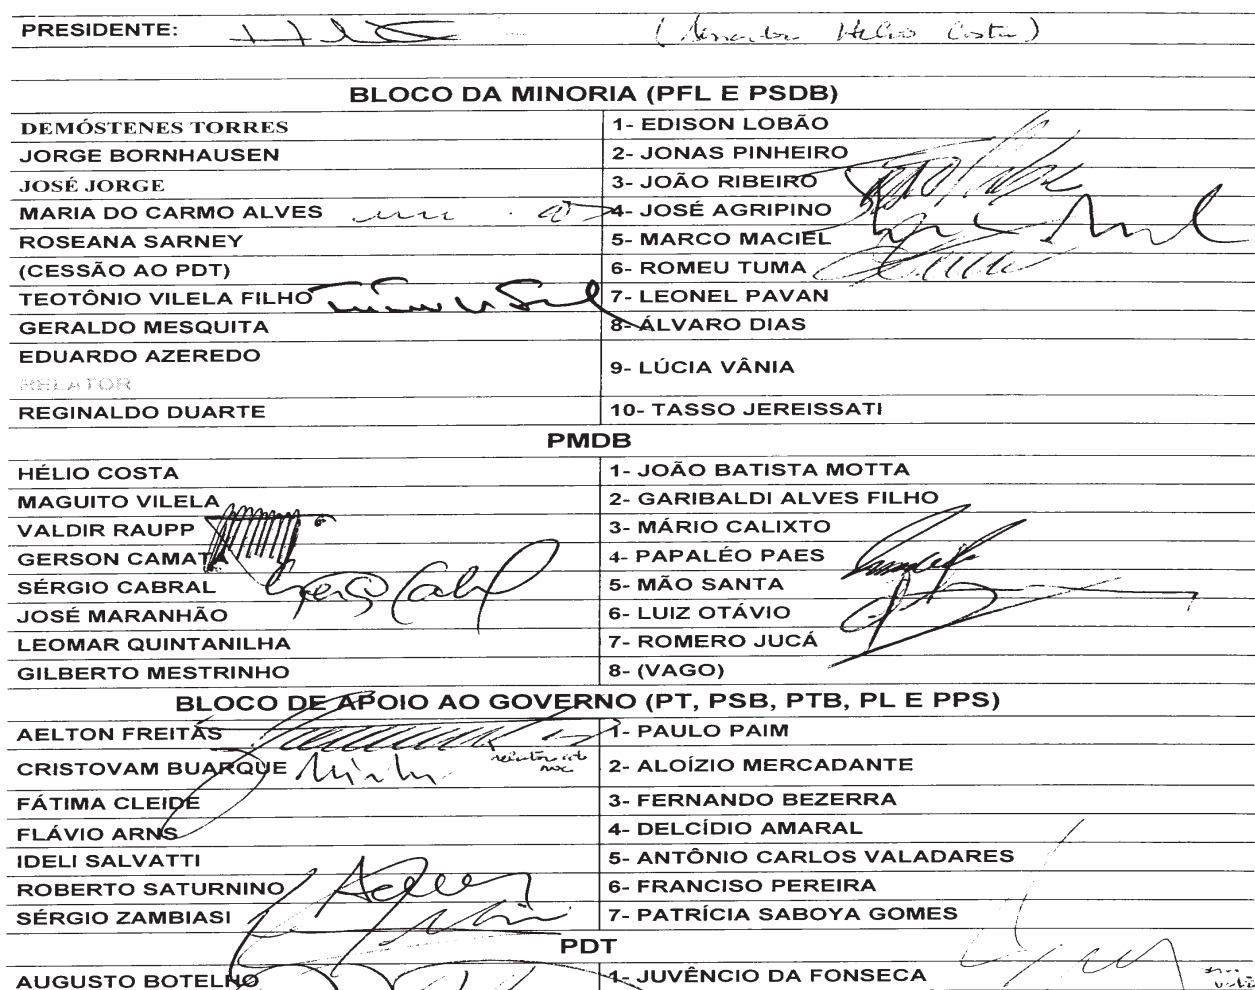 PRESIDENTE: (Senador Helio Costa)
BLOCO DA MINORIA (PFL E PSDB)
DEMÓSTENES TORRES 1- EDISON LOBÃO
JORGE BORNHAUSEN 2- JONAS PINHEIRO
JOSÉ JORGE 3- JOÃO RIBEIRO
MARIA DO CARMO ALVES 4- JOSÉ AGRIPINO
ROSEANA SARNEY 5- MARCO MACIEL
(CESSÃO AO PDT) 6- ROMEU TUMA
TEOTÔNIO VILELA FILHO 7- LEONEL PAVAN
GERALDO MESQUITA 8- ÁLVARO DIAS
EDUARDO AZEREDO
RELATOR 9- LÚCIA VÂNIA
REGINALDO DUARTE 10- TASSO JEREISSATI
PMDB
HÉLIO COSTA 1- JOÃO BATISTA MOTTA
MAGUITO VILELA 2- GARIBALDI ALVES FILHO
VALDIR RAUPP 3- MÁRIO CALIXTO
GERSON CAMATA 4- PAPALÉO PAES
SÉRGIO CABRAL Sérgio Cabral 5- MÃO SANTA
JOSÉ MARANHÃO 6- LUIZ OTÁVIO
LEOMAR QUINTANILHA 7- ROMERO JUCÁ
GILBERTO MESTRINHO 8- (VAGO)
BLOCO DE APOIO AO GOVERNO (PT, PSB, PTB, PL E PPS)
AELTON FREITAS 1- PAULO PAIM
CRISTOVAM BUARQUE 2- ALOÍZIO MERCADANTE
FÁTIMA CLEIDE 3- FERNANDO BEZERRA
FLÁVIO ARNS 4- DELCÍDIO AMARAL
IDELI SALVATTI 5- ANTÔNIO CARLOS VALADARES
ROBERTO SATURNINO 6- FRANCISO PEREIRA
SÉRGIO ZAMBIASI 7- PATRÍCIA SABOYA GOMES
PDT
AUGUSTO BOTELHO 1- JUVÊNCIO DA FONSECA